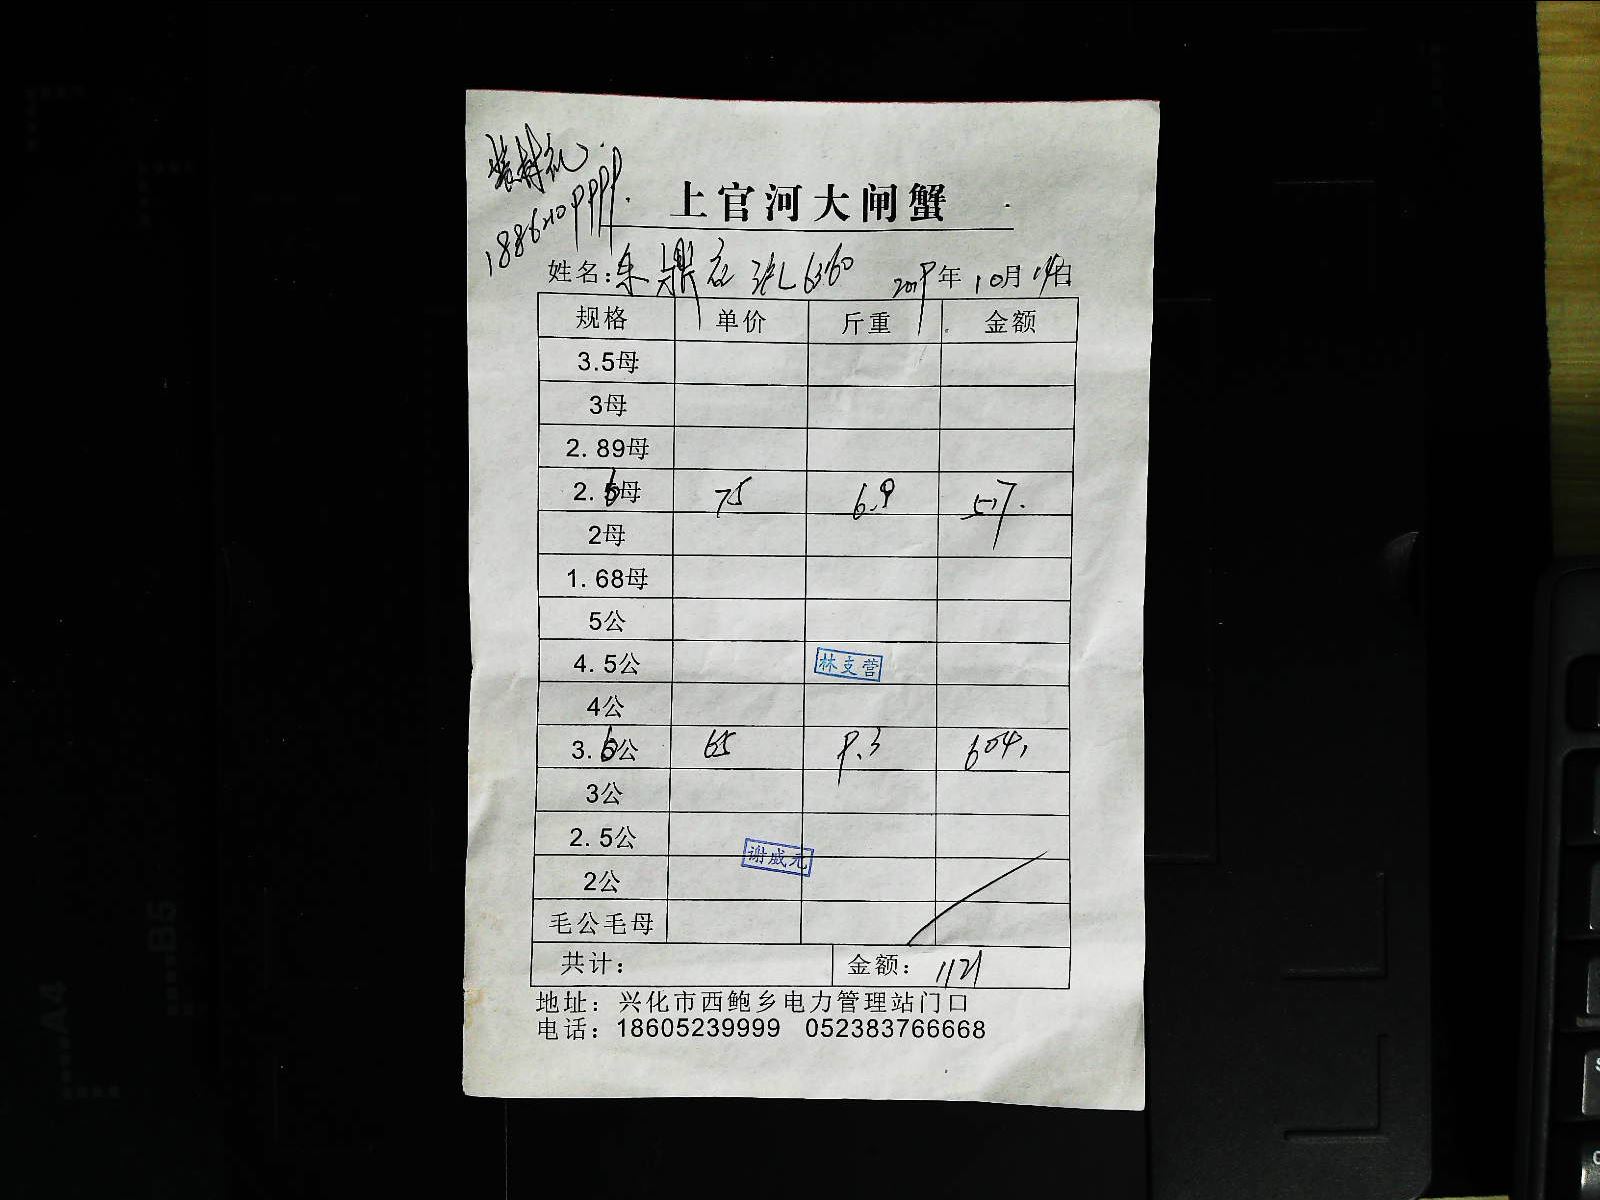 上官河大闸蟹
姓名: 朱鼎 6360 2019年10月14日
规格 单价 斤重 金额
3.5母
3母
2.89母
2.6母 75 6.9 517.
2母
1.68母
5公
4.5公
林支营
4公
3.6公 65 9.3 604.
3公
2.5公
谢威元
2公
毛公毛母
共计: 金额: 1121
地址: 兴化市西鲍乡电力管理站门口
电话: 18605239999 052383766668